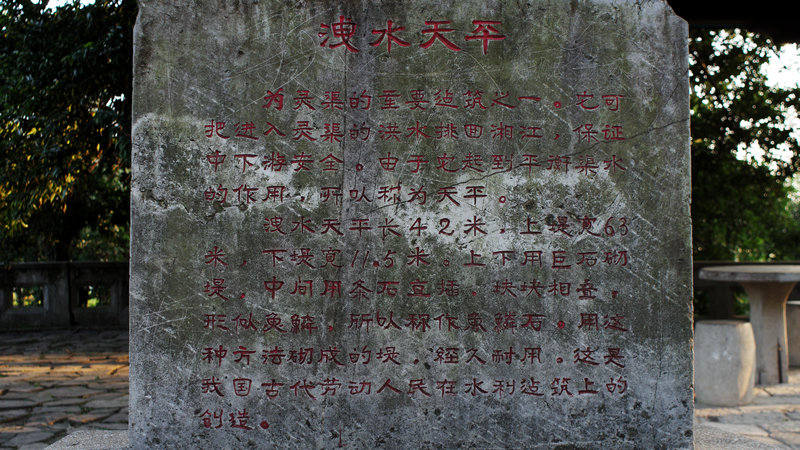 洩水天平
为灵渠的重要造筑之一。它可
把进入灵渠的洪水排回湘江，保证
中下游安全。由于它起到平衡渠水
的作用，所以称为天平。
洩水天平长42米，上堤宽63
米，下堤宽11.5米。上下用巨石砌
堤，中间用条石直插，块块相叠，
形似鱼鳞，所以称作鱼鳞石。用这
种方法砌成的堤，经久耐用。这是
我国古代劳动人民在水利造筑上的
创造。